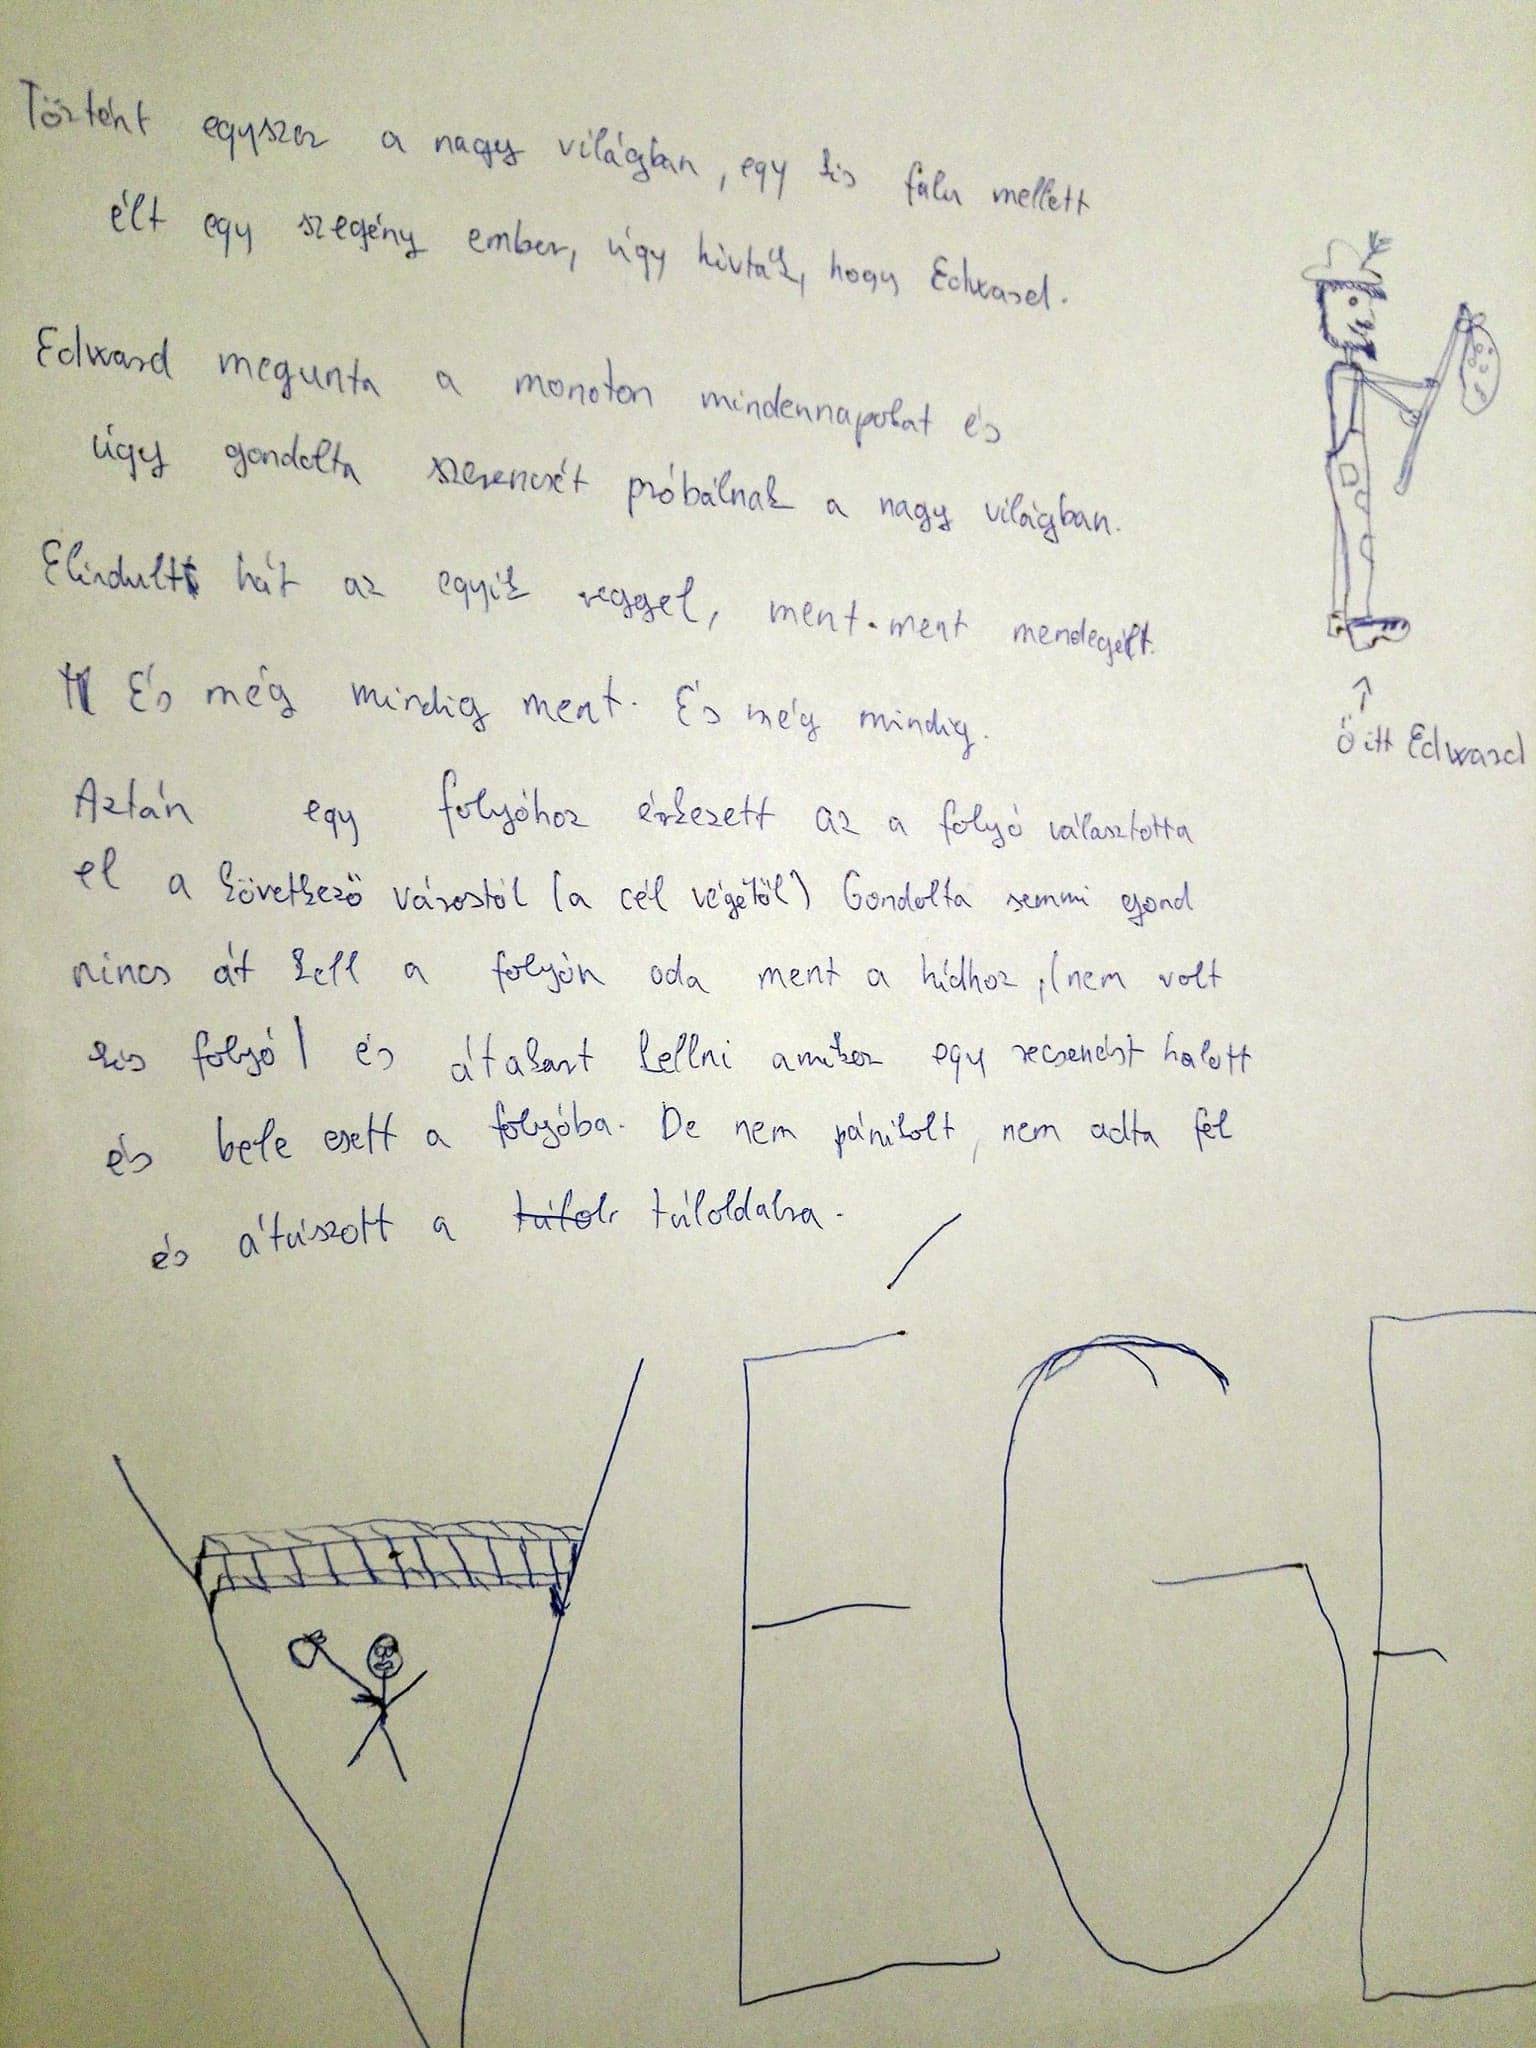 Történt egyszer a nagy világban, egy kis falu mellett
élt egy szegény ember, úgy hívták, hogy Edward.
Edward megunta a monoton mindennapokat és
úgy gondolta szerencsét próbálnak a nagy világban.
Elindult hát az egyik reggel, ment-ment mendegélt.
És még mindig ment. És még mindig.
Ő itt Edward
Aztán egy folyóhoz érkezett az a folyó választotta
el a következő várostól (a cél végétől) Gondolta semmi gond
nincs át kell a folyón oda ment a hídhoz, (nem volt
kis folyó) és átakart kellni amikor egy recsenést halott
és bele esett a folyóba. De nem pánikolt, nem adta fel
és átúszott a túlol túloldalra.
VÉGE